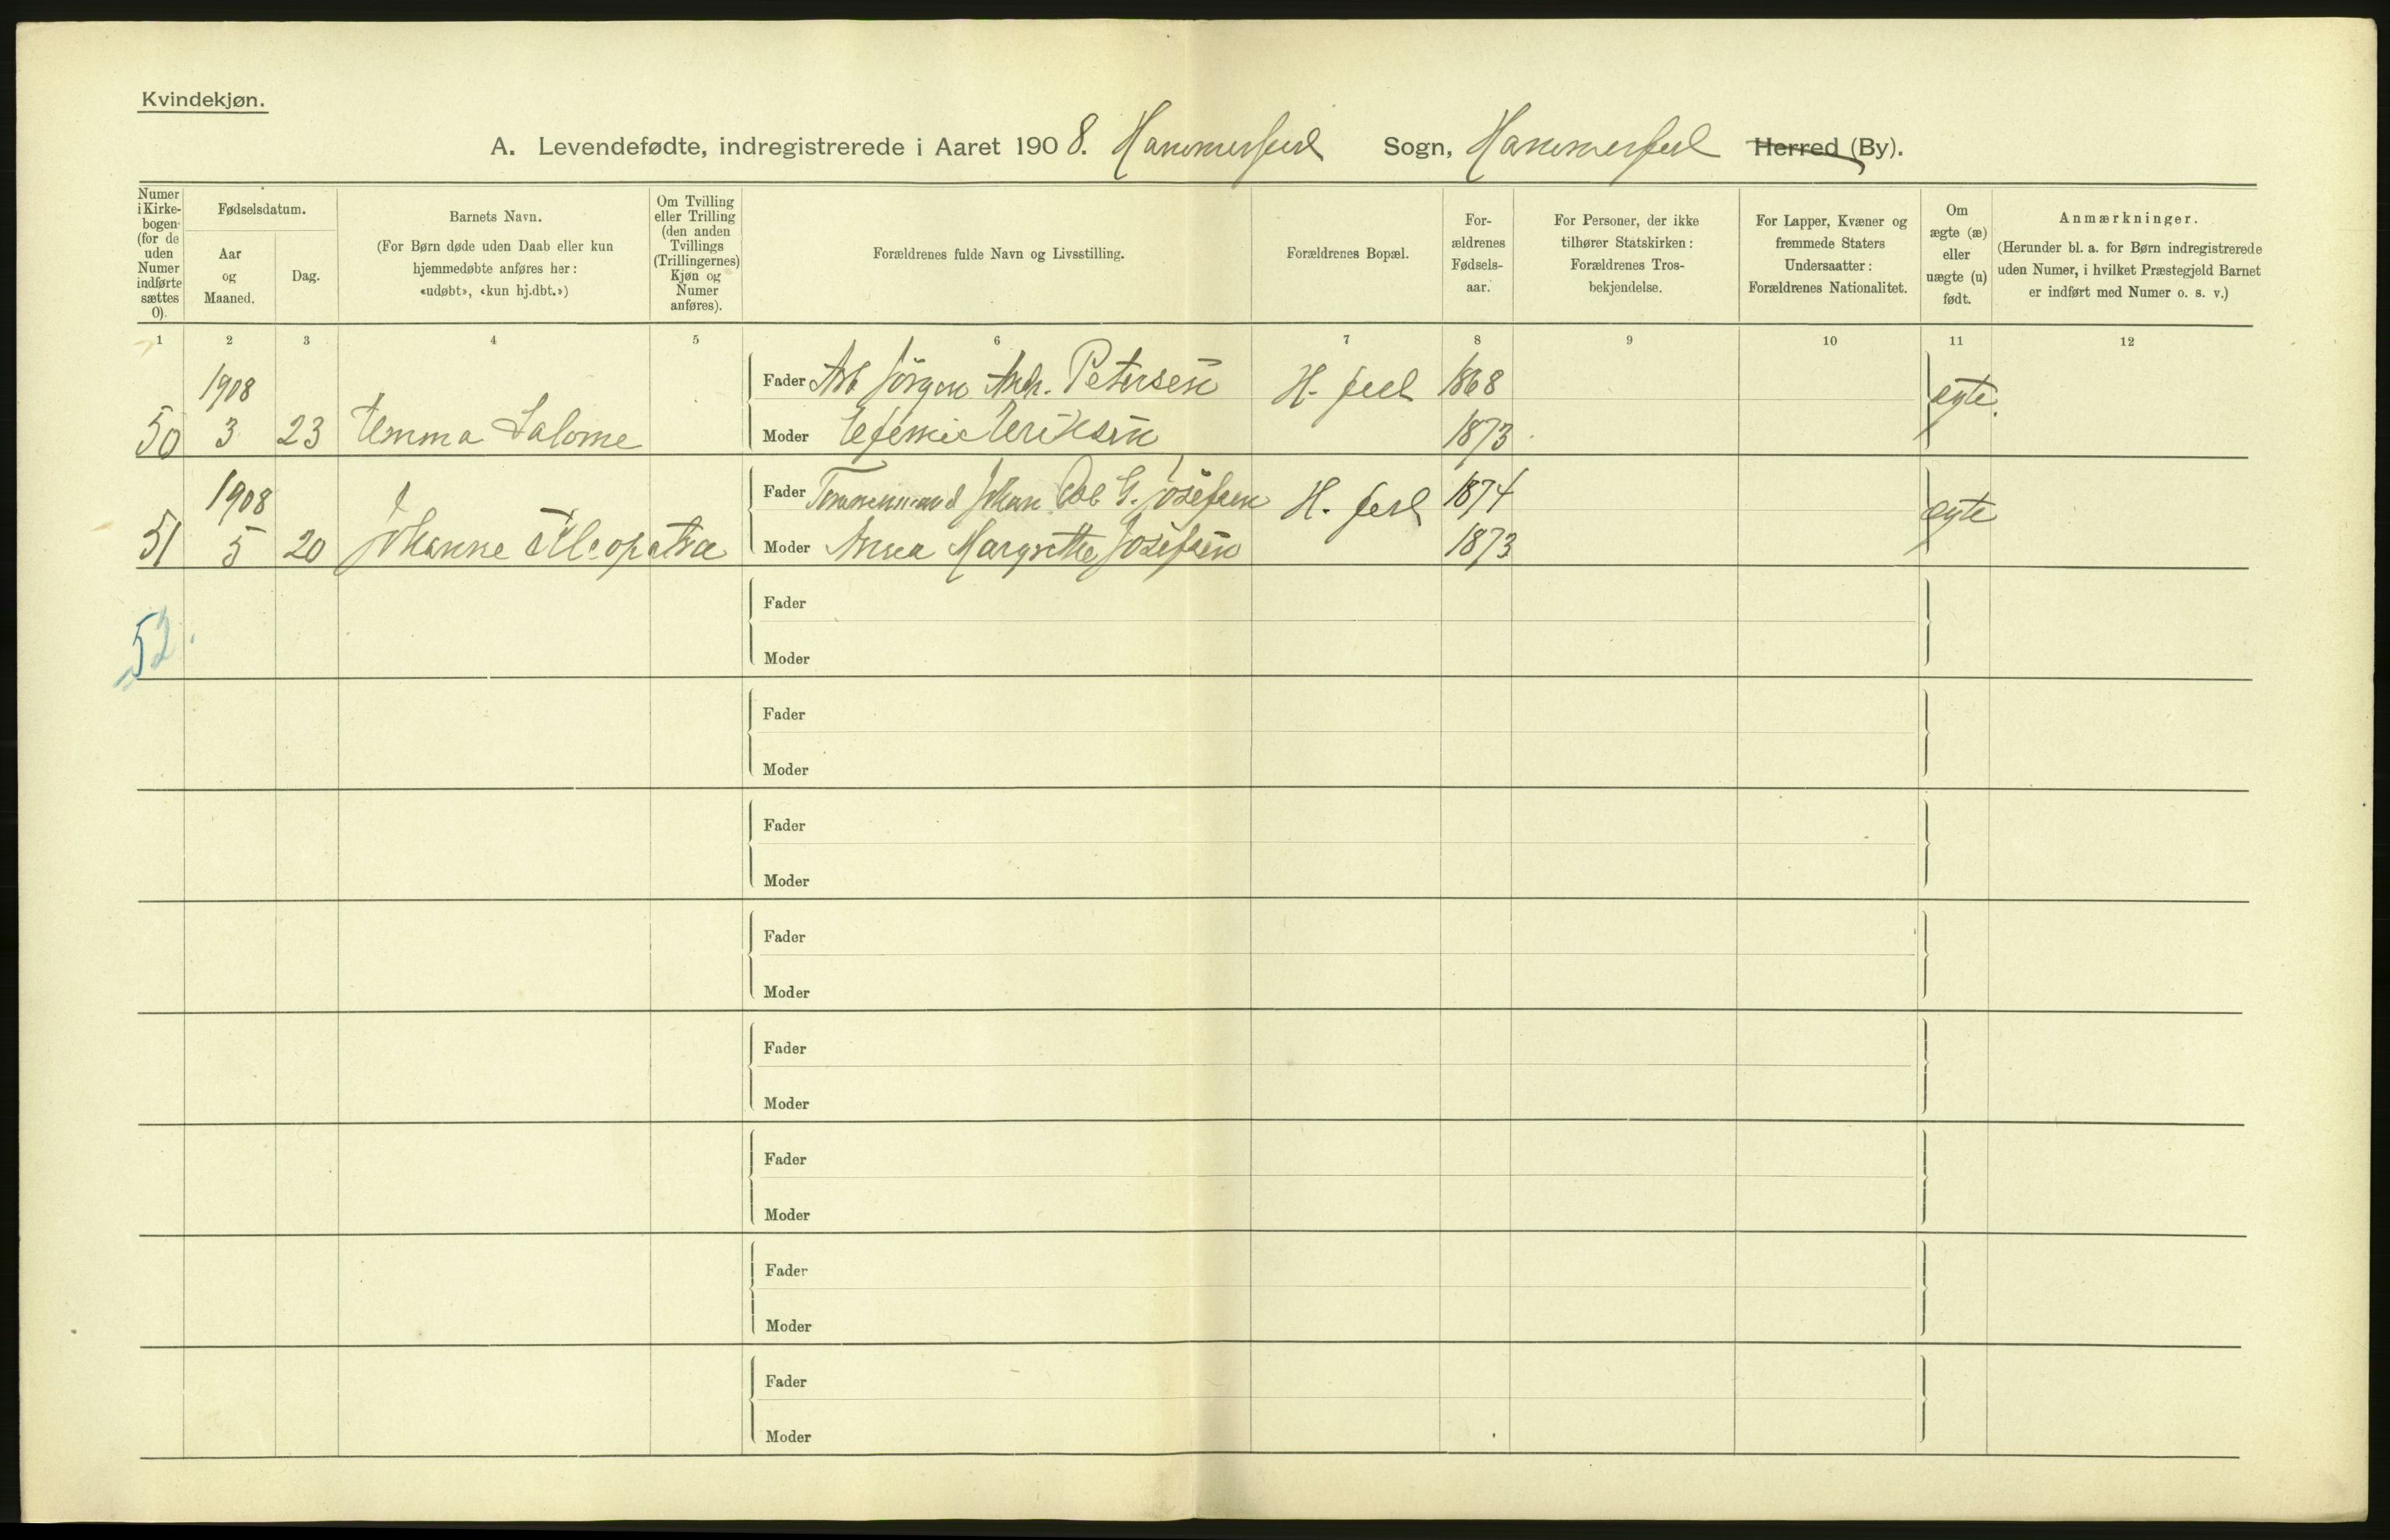 Kvindekjøn.
A. Levendefødte, indregistrerede i Aaret 1908. Hammerfest Sogn, Hammerfest Herred (By).
Numer i Kirkebogen (for de uden Numer indførte sættes 0).
Fødselsdatum.
Aar og Maaned.
Dag.
Barnets Navn.
(For Børn døde uden Daab eller kun hjemmedøbte anføres her: «udøbt», «kun hj.dbt.»)
Om Tvilling eller Trilling (den anden Tvillings (Trillingernes) Kjøn og Numer anføres).
Forældrenes fulde Navn og Livsstilling.
Forældrenes Bopæl.
Forældrenes Fødselsaar.
For Personer, der ikke tilhører Statskirken: Forældrenes Trosbekjendelse.
For Lapper, Kvæner og fremmede Staters Undersaatter: Forældrenes Nationalitet.
Om ægte (æ) eller uægte (u) født.
Anmærkninger.
(Herunder bl. a. for Børn indregistrerede uden Numer, i hvilket Præstegjeld Barnet er indført med Numer o. s. v.)
1 2 3 4 5 6 7 8 9 10 11 12
1908 Fader Arb Jörgen Petersen H. fest 1868 egte.
50 3 23 Emma Salome Moder Efemie Eriksen 1873
1908 Fader Tømmermand Johan G. Josefsen H. fest 1874 egte
51 5 20 Johanne Kleopatra Moder Anna Margrethe Josefsen 1873
Fader
52.
Moder
Fader
Moder
Fader
Moder
Fader
Moder
Fader
Moder
Fader
Moder
Fader
Moder
Fader
Moder